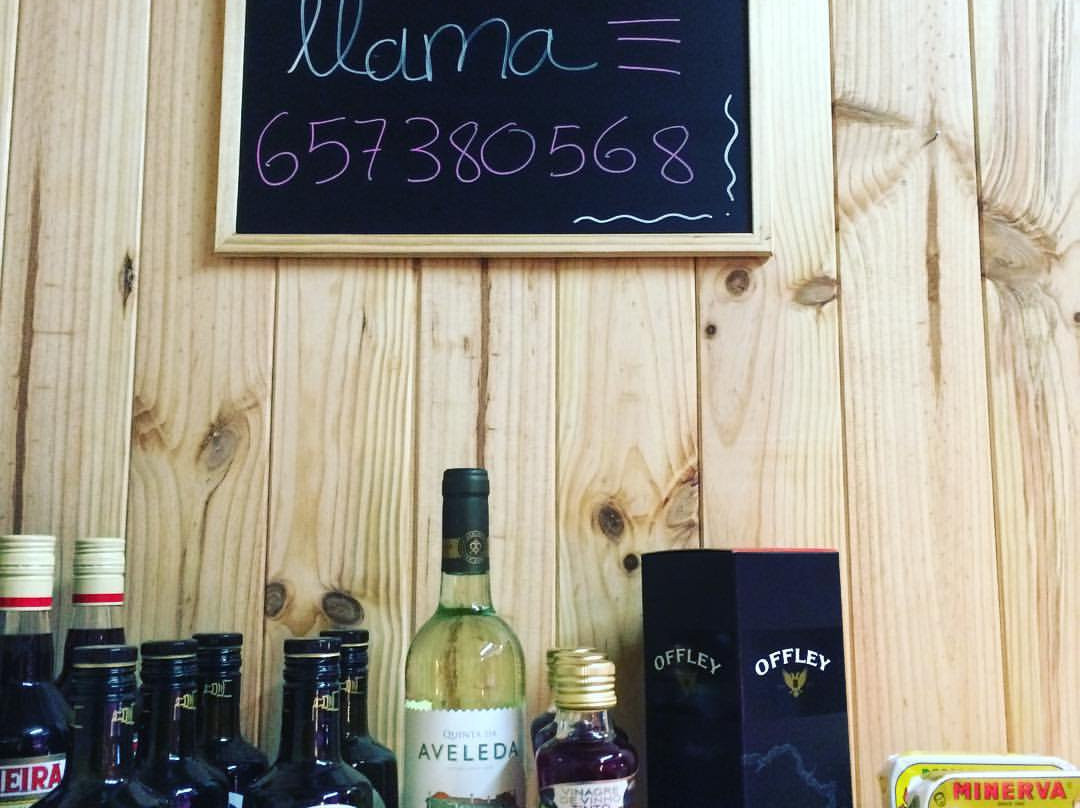 llama
657380568
QUINTA DA
AVELEDA
OFFLEY
OFFLEY
EIRA
VINAGRE
DE VINHO
MINERVA